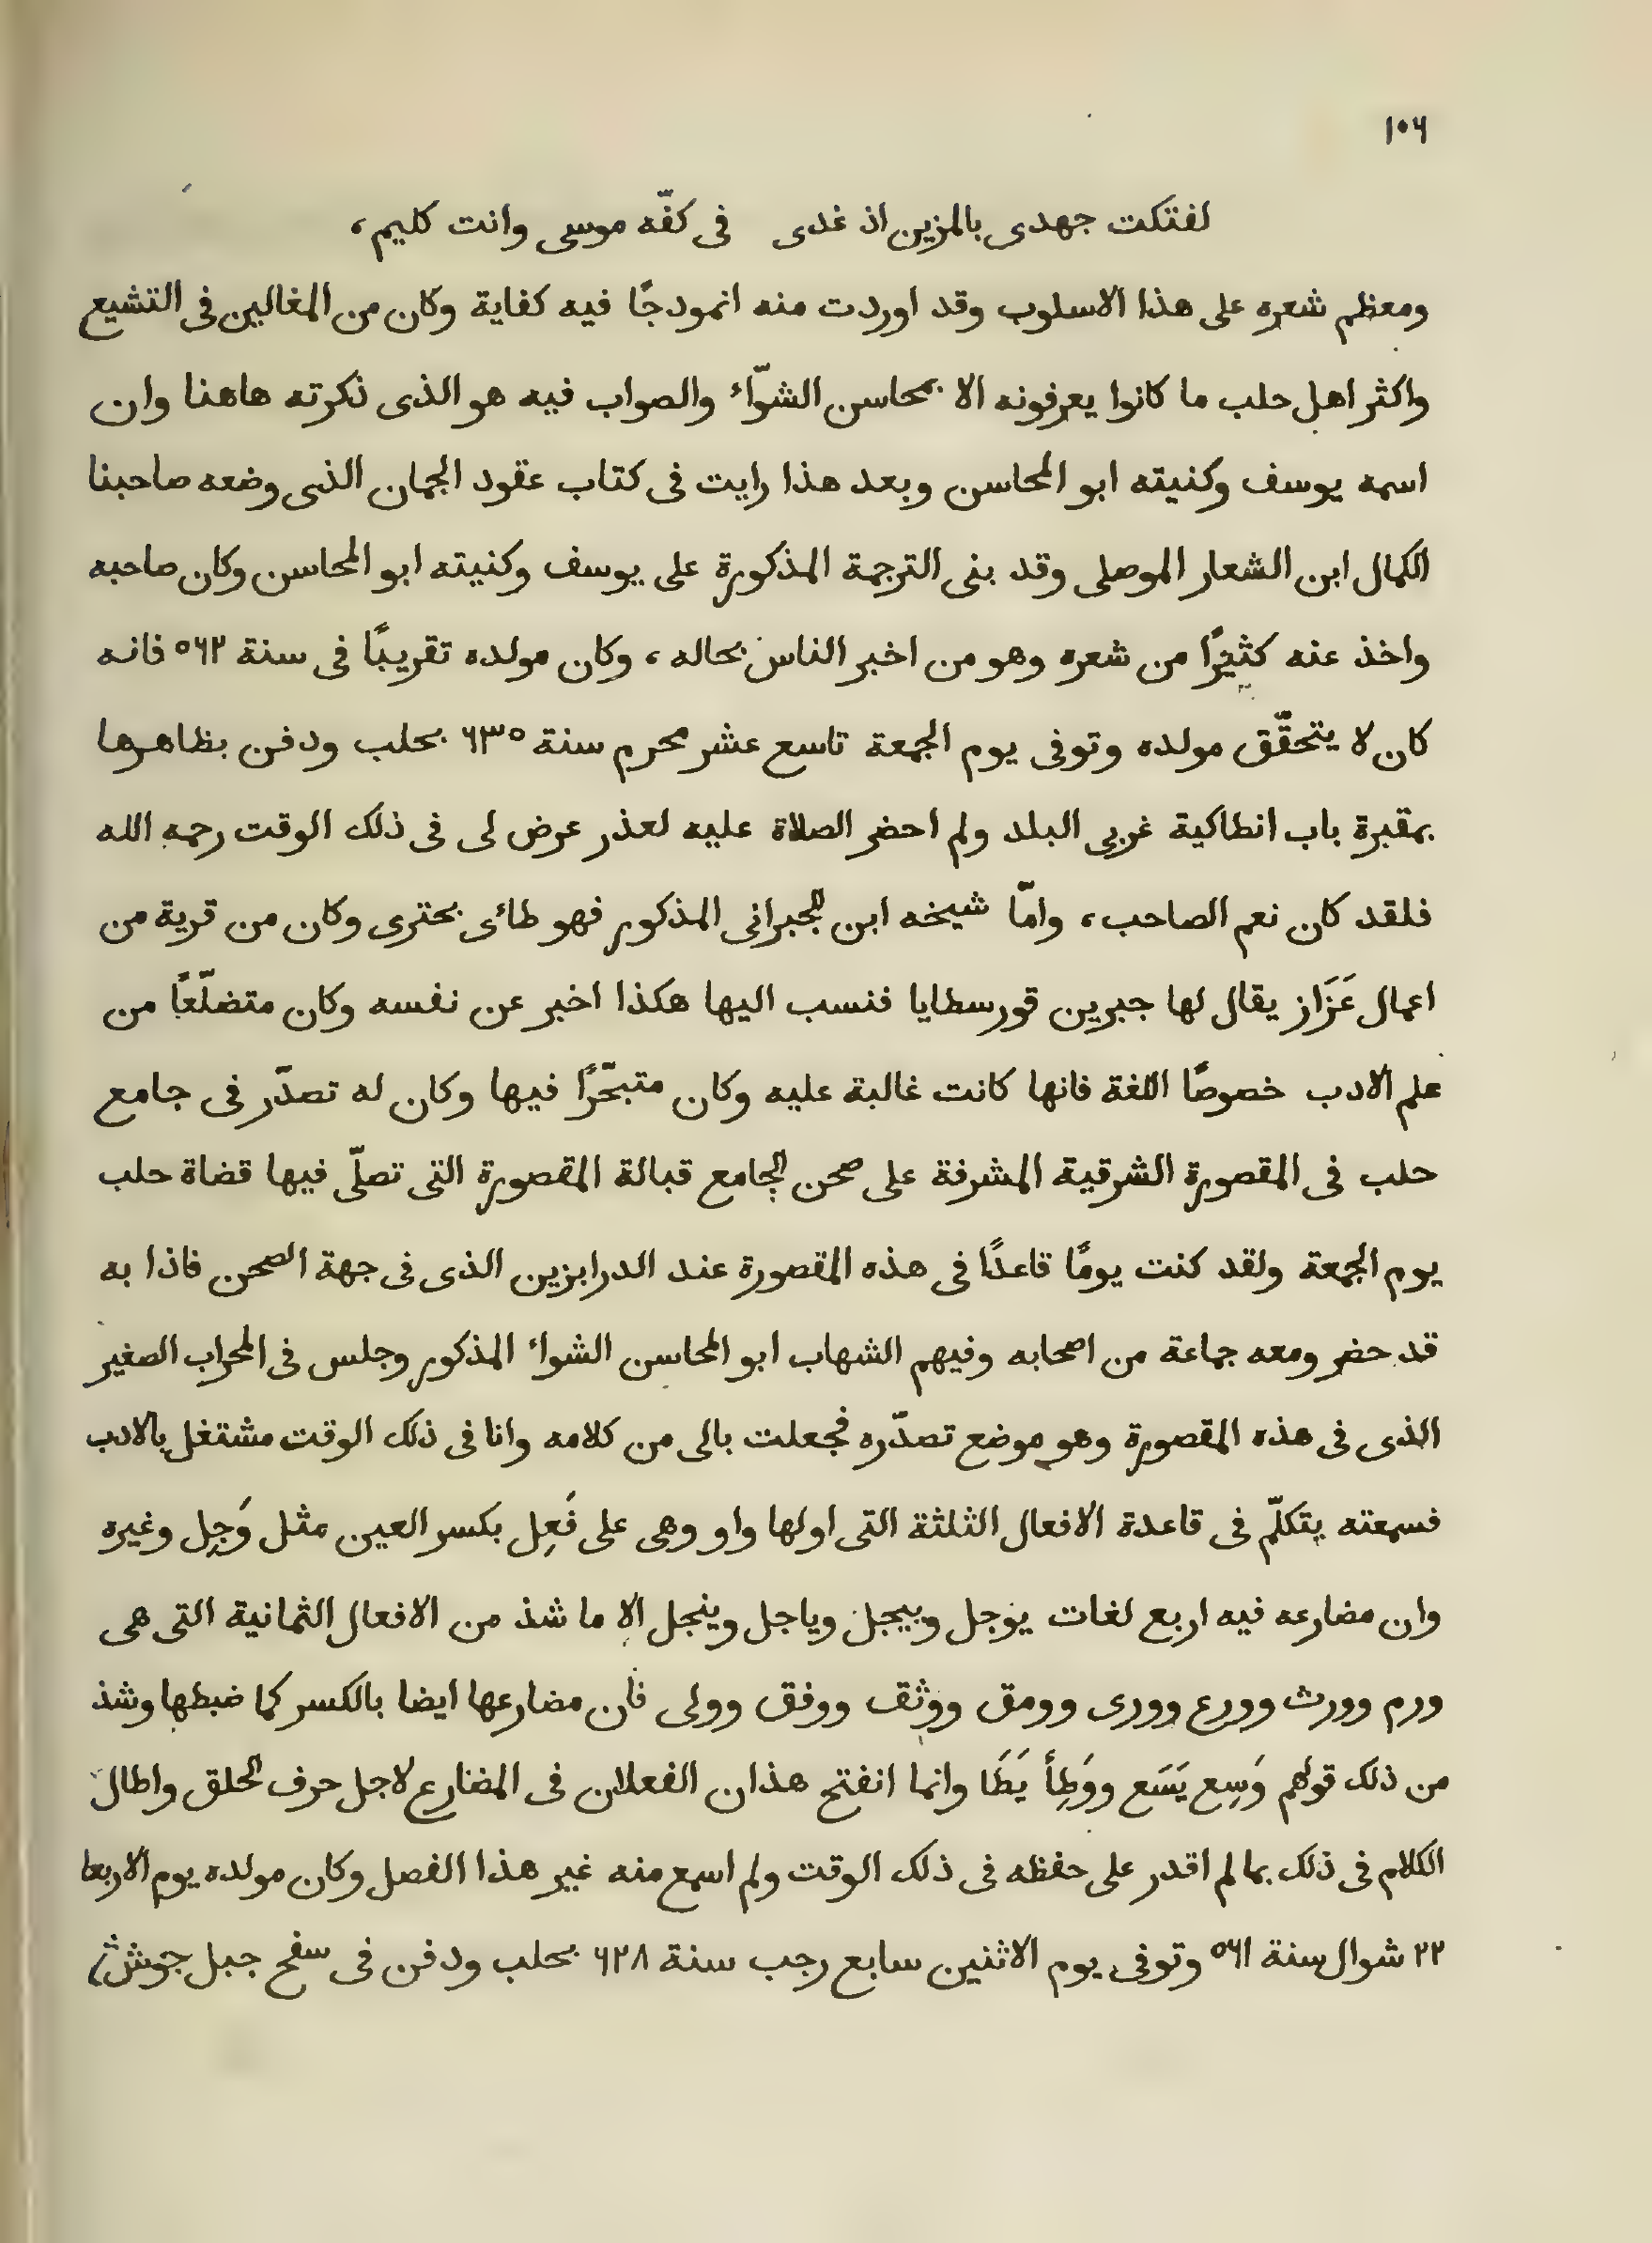 ١٠٦
لفتكت جهدى بالمزين اذ غدى فى كفّه موسى وانت كليم،
ومعظم شعره على هذا الاسلوب وقد اوردت منه انمودجًا فيه كفاية وكان من المغالين فى التشيع
واكثر اهل حلب ما كانوا يعرفونه الا بمحاسن الشوّاء والصواب فيه هو الذى ذكرته هاهنا وان
اسمه يوسف وكنيته ابو المحاسن وبعد هذا رايت فى كتاب عقود الجمان الذى وضعه صاحبنا
الكمال ابن الشعار الموصلى وقد بنى الترجمة المذكورة على يوسف وكنيته ابو المحاسن وكان صاحبه
واخذ عنه كثيرًا من شعره وهو من اخبر الناس بحاله، وكان مولده تقريبًا فى سنة ٥٦٢ فانه
كان لا يتحقّق مولده وتوفى يوم الجمعة تاسع عشر محرم سنة ٦٣٥ بحلب ودفن بظاهرها
بمقبرة باب انطاكية غربى البلد ولم احضر الصلاة عليه لعذر عرض لى فى ذلك الوقت رحمه الله
فلقد كان نعم الصاحب، وامّا شيخه ابن الجبرانى المذكور فهو طائى بحترى وكان من قرية من
اعمال عَزَاز يقال لها جبرين قورسطايا فنسب اليها هكذا اخبر عن نفسه وكان متضلّعًا من
علم الادب خصوصًا اللغة فانها كانت غالبة عليه وكان متبحّرًا فيها وكان له تصدّر فى جامع
حلب فى المقصورة الشرقية المشرفة على صحن الجامع قبالة المقصورة التى تصلّى فيها قضاة حلب
يوم الجمعة ولقد كنت يومًا قاعدًا فى هذه المقصورة عند الدرابزين الذى فى جهة الصحن فاذا به
قد حضر ومعه جماعة من اصحابه وفيهم الشهاب ابو المحاسن الشواء المذكور وجلس فى المحراب الصغير
الذى فى هذه المقصورة وهو موضع تصدّره فجعلت بالى من كلامه وانا فى ذلك الوقت مشتغل بالادب
فسمعته يتكلّم فى قاعدة الافعال الثلثة التى اولها واو وهى على فَعِل بكسر العين مثل وَجِل وغيره
وان مضارعه فيه اربع لغات يوجل وييجل وياجل وينجل الا ما شذ من الافعال الثمانية التى هى
ورم وورث وورع وورى وومق ووثق ووفق وولى فان مضارعها ايضا بالكسر كما ضبطها وشذ
من ذلك قولهم وَسِع يَسَع ووَطِأ يَطَا وانما انفتح هذان الفعلان فى المضارع لاجل حرف الحلق واطال
الكلام فى ذلك بما لم اقدر على حفظه فى ذلك الوقت ولم اسمع منه غير هذا الفصل وكان مولده يوم الاربعا
٢٢ شوال سنة ٥٦١ وتوفى يوم الاثنين سابع رجب سنة ٦٢٨ بحلب ودفن فى سفح جبل جوشن